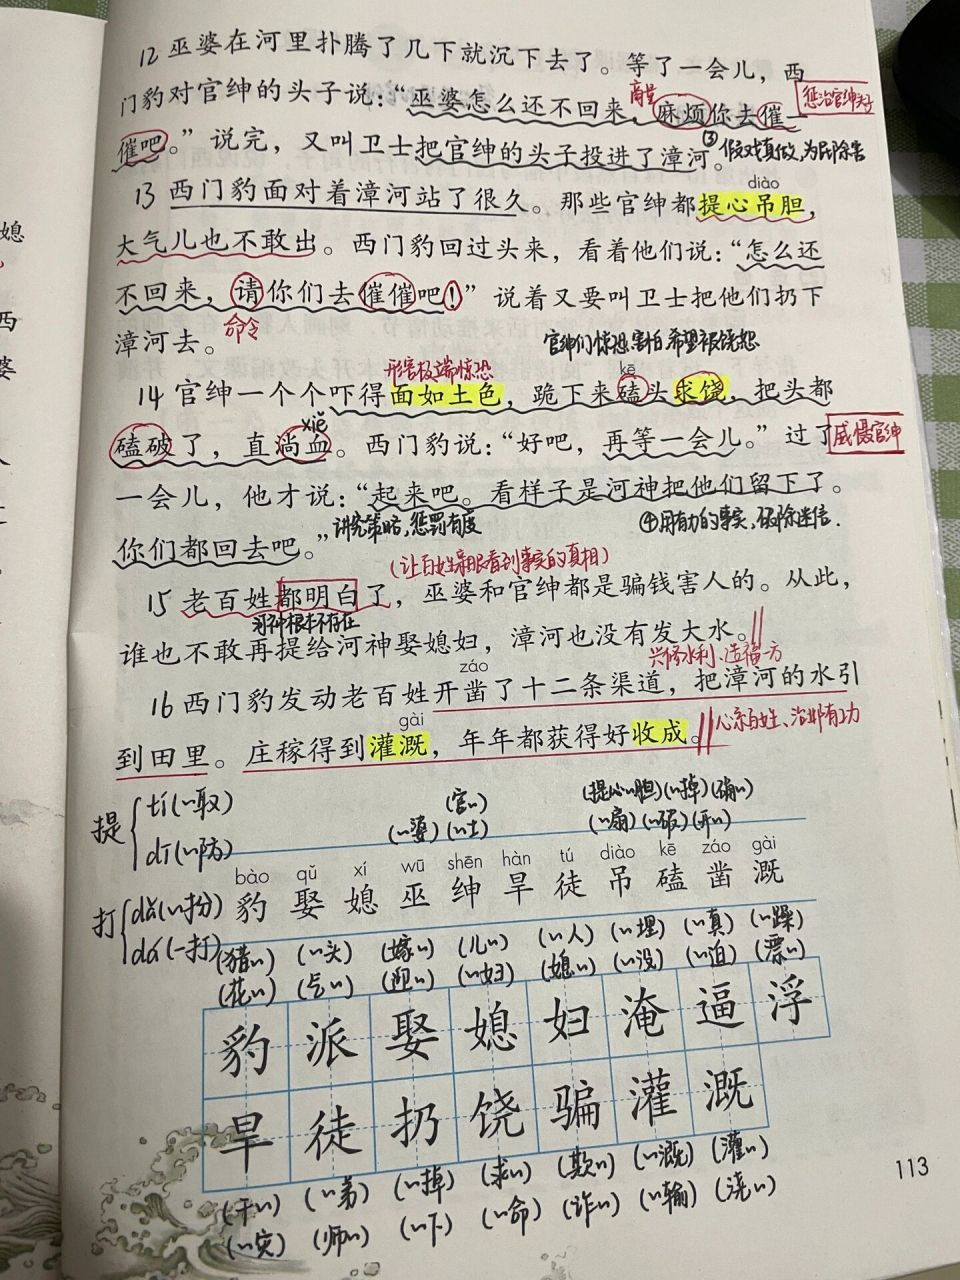 12 巫婆在河里扑腾了几下就沉下去了。等了一会儿，西
门豹对官绅的头子说：“巫婆怎么还不回来，麻烦你去催一
商量
惩治官绅头子
催吧。”说完，又叫卫士把官绅的头子投进了漳河。
③假戏真做，为民除害
diào
13 西门豹面对着漳河站了很久。那些官绅都提心吊胆，
大气儿也不敢出。西门豹回过头来，看着他们说：“怎么还
不回来，请你们去催催吧！”说着又要叫卫士把他们扔下
命令
漳河去。
官绅们惊恐害怕希望被饶恕
形容极端惊恐
kē
14 官绅一个个吓得面如土色，跪下来磕头求饶，把头都
xiě
磕破了，直淌血。西门豹说：“好吧，再等一会儿。”过了
威慑官绅
一会儿，他才说：“起来吧。看样子是河神把他们留下了。
讲究策略，惩罚有度
④用有力的事实，破除迷信.
你们都回去吧。”
（让百姓亲眼看到事实的真相）
15 老百姓都明白了，巫婆和官绅都是骗钱害人的。从此，
河神根本不存在
谁也不敢再提给河神娶媳妇，漳河也没有发大水。
兴修水利、造福一方
záo
16 西门豹发动老百姓开凿了十二条渠道，把漳河的水引
gài
到田里。庄稼得到灌溉，年年都获得好收成。
心系百姓、治邺有功
提 tí(〃取)
dī(〃防)
(官〃) (提心〃胆)(〃掉)(确〃)
(〃婆)(〃士) (〃扇)(〃破)(开〃)
bào qǔ xí wū shēn hàn tú diào kē záo gài
豹 娶 媳 巫 绅 旱 徒 吊 磕 凿 溉
打 dǎ(〃扮)
dá(一打)
(猎〃) (〃头) (嫁〃) (儿〃) (〃人) (〃埋) (〃真) (〃躁)
(花〃) (气〃) (迎〃) (〃妇) (媳〃) (〃没) (〃迫) (漂〃)
豹 派 娶 媳 妇 淹 逼 浮
旱 徒 扔 饶 骗 灌 溉
(干〃) (〃弟) (〃掉) (求〃) (欺〃) (〃溉) (灌〃)
(〃灾) (师〃) (〃下) (〃命) (诈〃) (〃输) (浇〃)
113
媳
西
婆